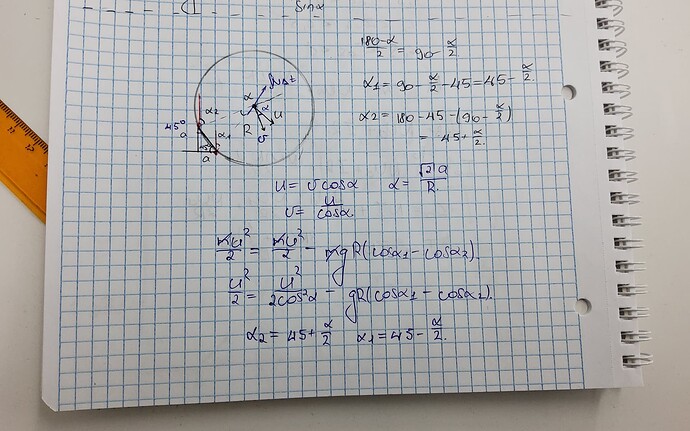 sinα
(180-α)/2 = 90 - α/2
α1 = 90 - α/2 - 45 = 45 - α/2.
α2 = 180 - 45 - (90 - α/2)
= 45 + α/2.
α NΔt
α2 α
45° R u
a α1 υ
45°
a
u = υcosα α = √2 a/R.
υ = u/cosα.
mu²/2 = mu²/2 - mgR(cosα1 - cosα2).
u²/2 = u²/2cos²α - gR(cosα1 - cosα2).
α2 = 45 + α/2 α1 = 45 - α/2.